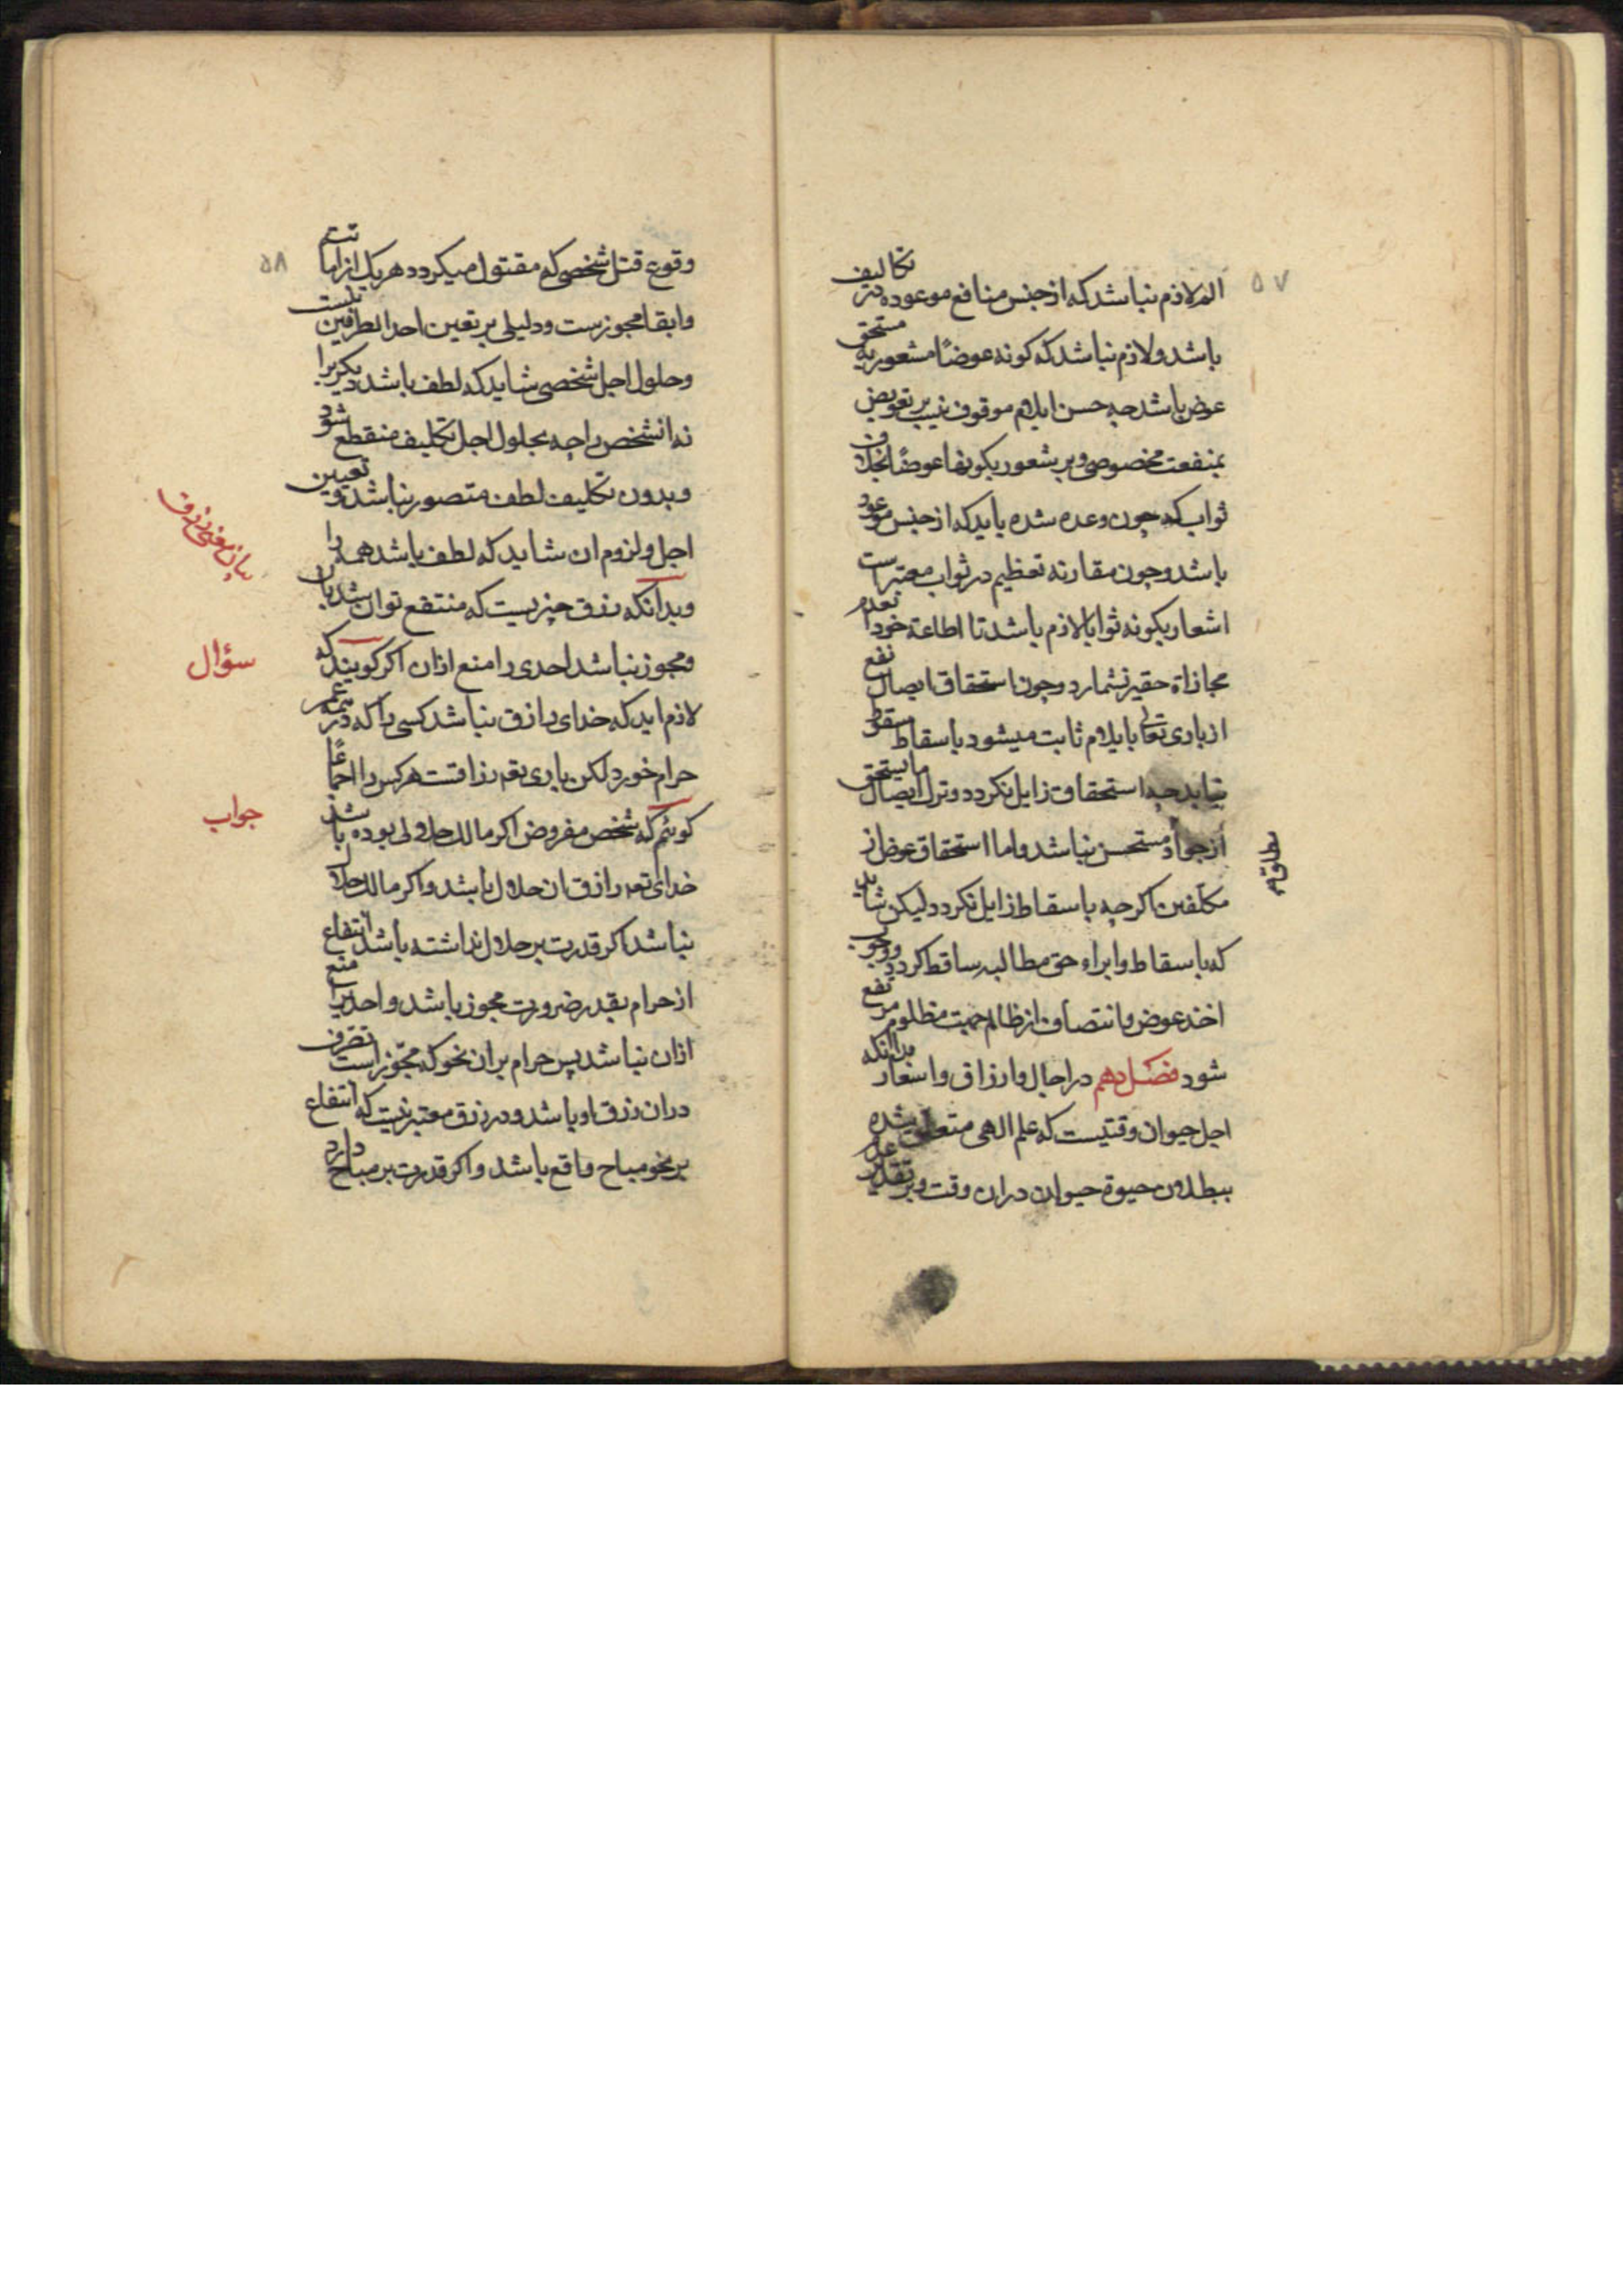 ۵۷
الم لازم نباشد که از جنس منافع موعوده در تکالیف
باشد و لازم نباشد که کونه عوضًا مشعور به مستحق
عوض باشد چه حسن ایلام موقوف نیست بر تعویض
بمنفعت مخصوصی و بر شعور بکونها عوضًا بخلاف
ثواب که چون وعده شده باید که از جنس موعود
باشد و چون مقارنه تعظیم در ثواب معتبر است
اشعار بکونه ثوابا لازم باشد تا اطاعة خود
مجازاة حقیر نشمارد و چون استحقاق ایصال نفع
از باری تعالی بایلام ثابت میشود باسقاط سقوط
نیابد چه استحقاق زایل نکردد و ترک ایصال ما یستحق
از جواد مستحسن نباشد و اما استحقاق عوض از
مکلفین اکرچه باسقاط زایل نکردد لیکن شاید
که باسقاط و ابراء حق مطالبه ساقط کردد و وجوب
اخذ عوض و انتصاف از ظالم جهت مظلوم مرتفع
شود فصل دهم در اجال و ارزاق و اسعار بدانکه
اجل حیوان وقتیست که علم الهی متعلق شده
ببطلان حیوة حیوان دران وقت و بر تقدیر عدم
۵۸
وقوع قتل شخصی که مقتول میکردد هریک از اماتت
وابقا مجوزست و دلیلی بر تعین احد الطرفین نیست
و حلول اجل شخصی شاید که لطف باشد دیکریرا
نه انشخص را چه بحلول اجل تکلیف منقطع شود
و بدون تکلیف لطف متصور نباشد و تعیین
اجل و لزوم ان شاید که لطف باشد همه را
و بدانکه رزق چیزیست که منتفع توان شد بان
بیان معنی رزق
و مجوز نباشد احدی را منع ازان اکر کویند که
سؤال
لازم اید که خدای رازق نباشد کسی را که در همه عمر
حرام خورد لکن باری تعه رزاقست هرکس را اجماعًا
کوئیم که شخص مفروض اکر مالک حلالی بوده باشد
جواب
خدای تعه رازق ان حلال باشد و اکر مالک حلال
نباشد اکر قدرت بر حلال نداشته باشد انتفاع
از حرام بقدر ضرورت مجوز باشد و احدیرا منع
ازان نباشد پس حرام بران نحو که مجّوز است تصرف
دران رزق او باشد و در رزق معتبر نیست که انتفاع
بر نحو مباح واقع باشد و اکر قدرت بر مباح دارد